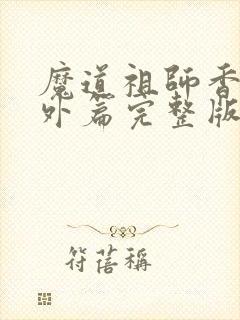 魔道祖師香
外篇完整版
符蓓稱